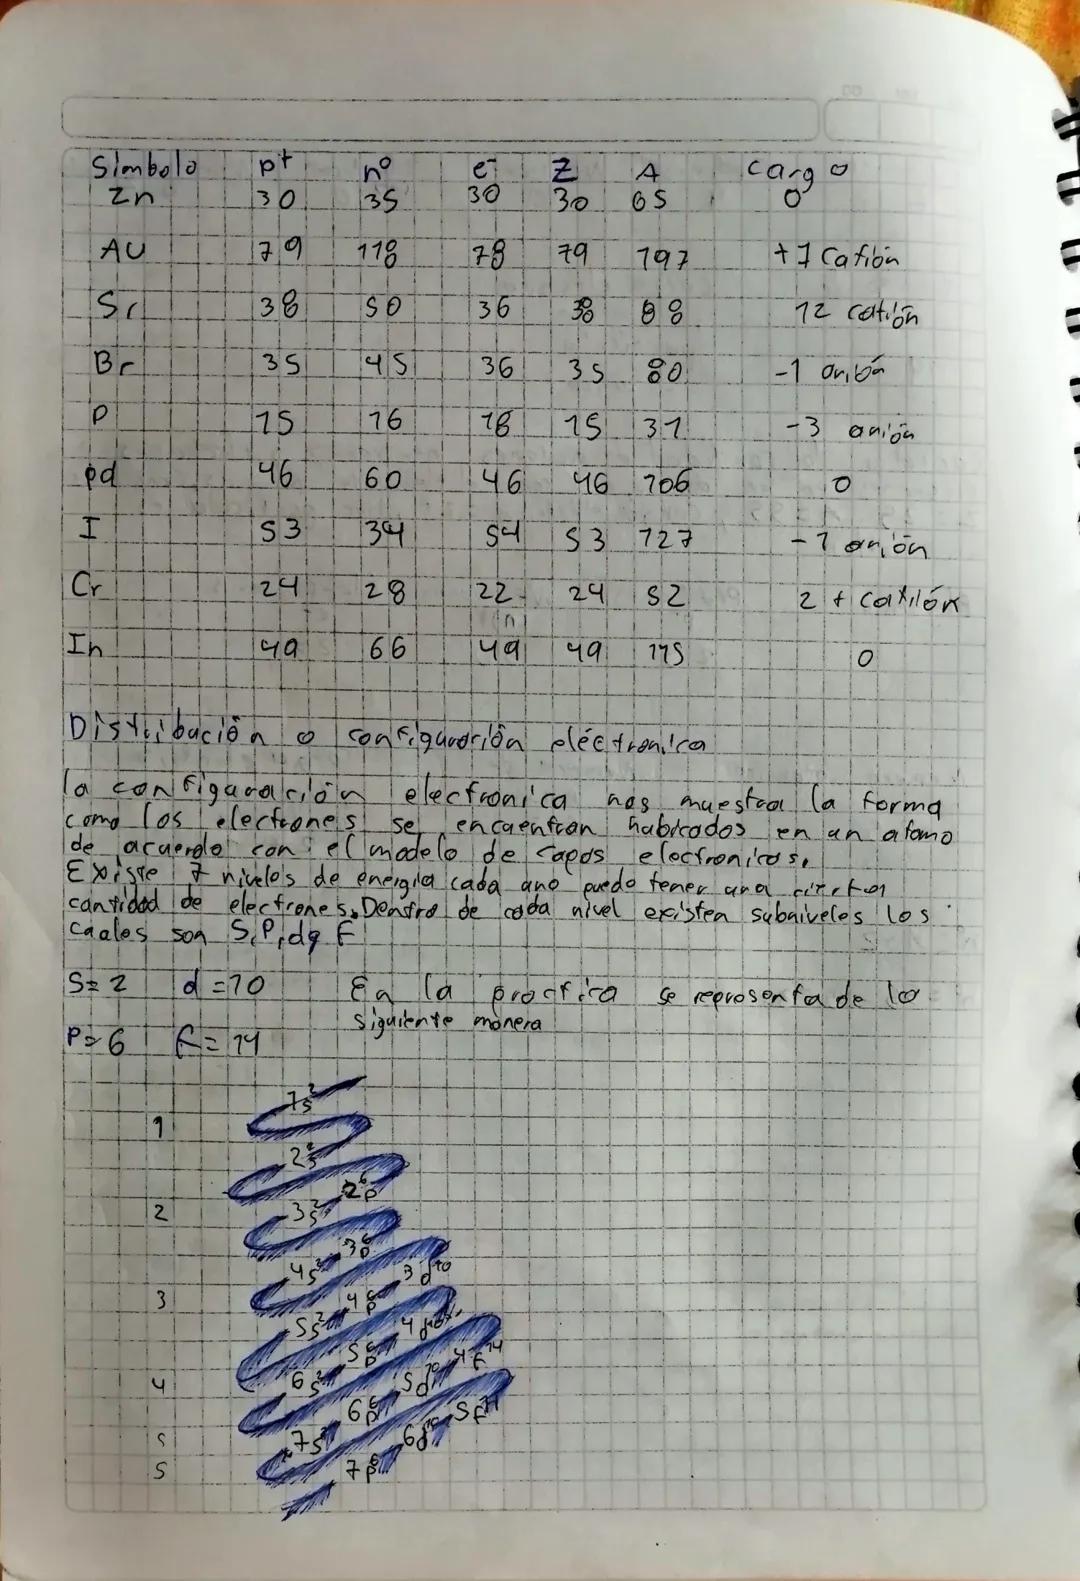 Símbolo p+ n° e- Z A cargo
Zn 30 35 30 30 65 0
AU 79 118 78 79 197 +1 Catión
Sr 38 50 36 38 88 +2 catión
Br 35 45 36 35 80 -1 anión
P 15 16 18 15 31 -3 anión
pd 46 60 46 46 106 0
I 53 34 54 53 127 -1 anión
Cr 24 28 22 24 52 2+ catión
In 49 66 49 49 115 0
Distribución o configuración eléctronica
la configuración electronica nos muestra la forma
como los electrones se encuentran hubicados en un atomo
de acuerdo con el modelo de capas electronicas.
Existe 7 niveles de energía cada uno puede tener una cierta
cantidad de electrones. Dentro de cada nivel existen subniveles los
cuales son S, P, d y F
S= 2 d = 10 En la practica se representa de la
siguiente manera
P= 6 F= 14
1s²
1
2s²
2p⁶
2 3s²
3p⁶
4s² 3d¹⁰
3 4p⁶
5s² 4d¹⁰
5p⁶ 4f¹⁴
4 6s² 5d¹⁰
6p⁶ 5f¹⁴
5 7s² 6d¹⁰
5 7p⁶